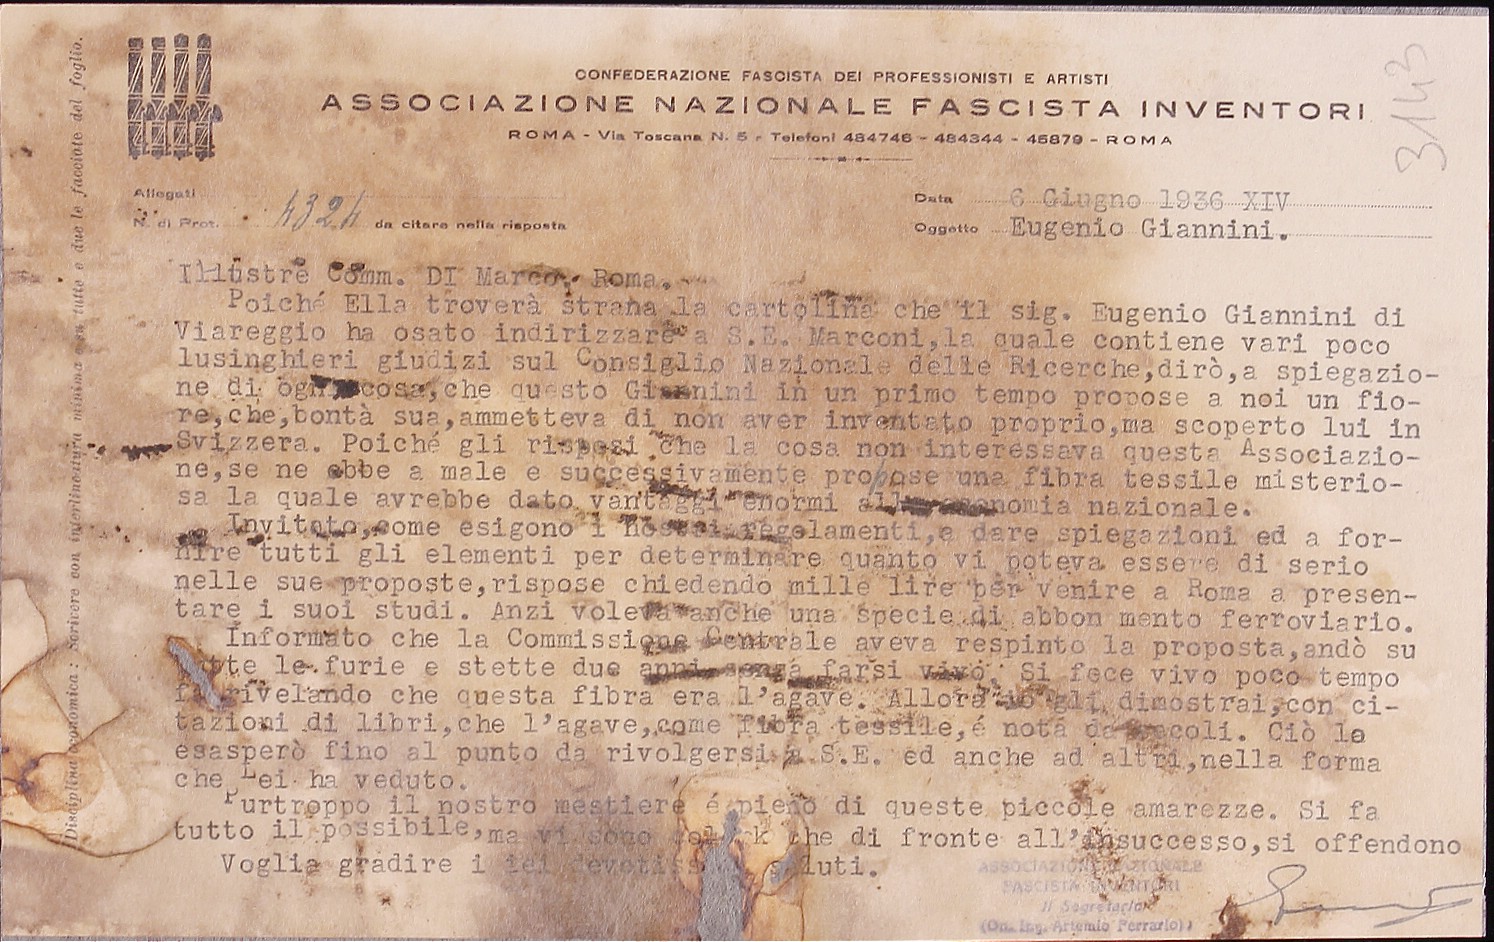 3143
CONFEDERAZIONE FASCISTA DEI PROFESSIONISTI E ARTISTI
ASSOCIAZIONE NAZIONALE FASCISTA INVENTORI
ROMA - Via Toscana N. 5 - Telefoni 484746 - 484344 - 45879 - ROMA
Allegati
N. di Prot. 4324 da citare nella risposta
Data 6 Giugno 1936 XIV
Oggetto Eugenio Giannini.
Disciplina economica: Scrivere con interlineatura minima e su tutte e due le facciate del foglio.
Illustre Comm. DI Marco, Roma.
Poiché Ella troverà strana la cartolina che il sig. Eugenio Giannini di
Viareggio ha osato indirizzare a S.E. Marconi,la quale contiene vari poco
lusinghieri giudizi sul Consiglio Nazionale delle Ricerche,dirò,a spiegazio-
ne di ogni cosa,che questo Giannini in un primo tempo propose a noi un fio-
re,che,bontà sua,ammetteva di non aver inventato proprio,ma scoperto lui in
Svizzera. Poiché gli risposi che la cosa non interessava questa Associazio-
ne,se ne ebbe a male e successivamente propose una fibra tessile misterio-
sa la quale avrebbe dato vantaggi enormi all'economia nazionale.
Invitato,come esigono i nostri regolamenti,a dare spiegazioni ed a for-
nire tutti gli elementi per determinare quanto vi poteva essere di serio
nelle sue proposte,rispose chiedendo mille lire per venire a Roma a presen-
tare i suoi studi. Anzi voleva anche una specie di abbon mento ferroviario.
Informato che la Commissione Centrale aveva respinto la proposta,andò su
tutte le furie e stette due anni senza farsi vivo. Si fece vivo poco tempo
fa rivelando che questa fibra era l'agave. Allora io gli dimostrai,con ci-
tazioni di libri,che l'agave,come fibra tessile,é nota da secoli. Ciò lo
esasperò fino al punto da rivolgersi a S.E. ed anche ad altri,nella forma
che Lei ha veduto.
Purtroppo il nostro mestiere é pieno di queste piccole amarezze. Si fa
tutto il possibile,ma vi sono che di fronte all'insuccesso,si offendono
Voglia gradire i miei devotissimi saluti.
ASSOCIAZIONE NAZIONALE
FASCISTA INVENTORI
Il Segretario
(On. Ing. Artemio Ferrario)